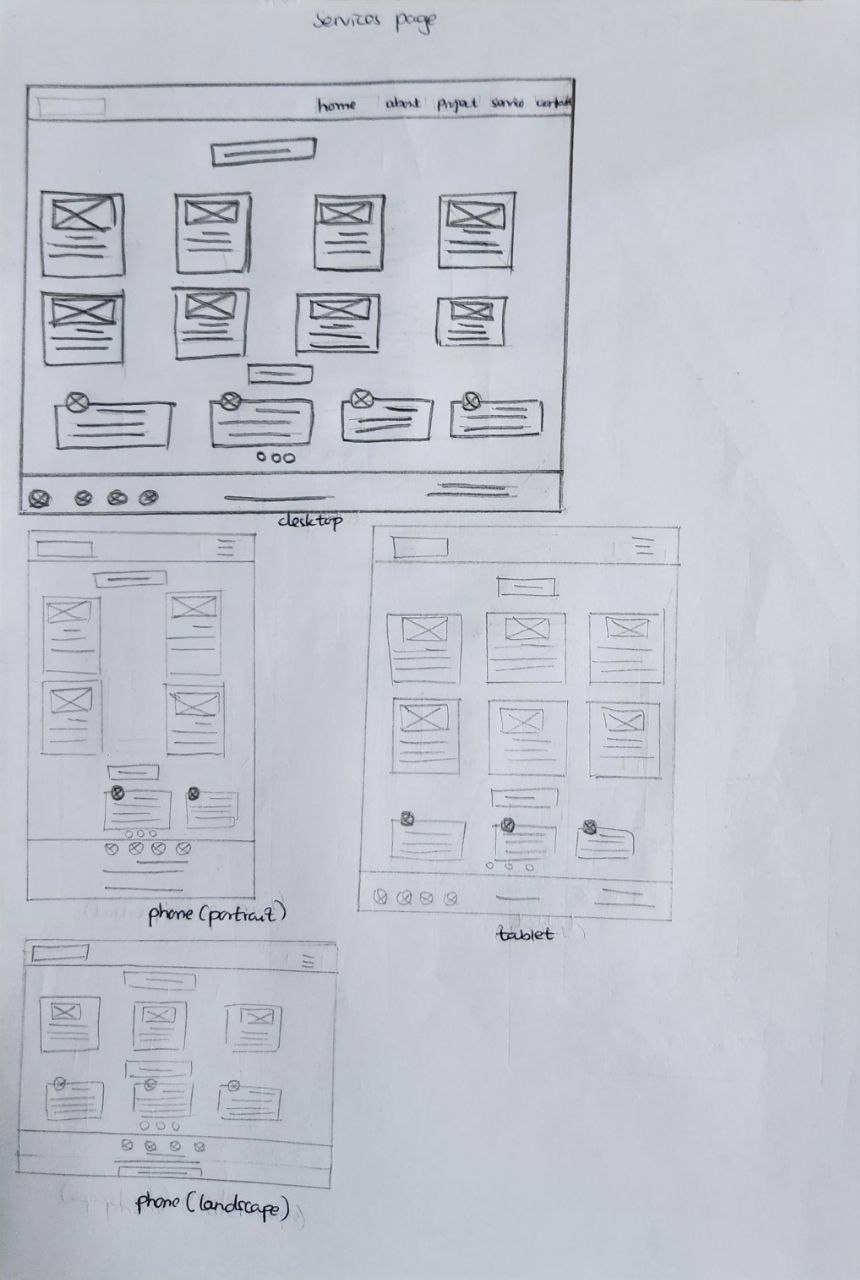 Services page
home about Project service contact
desktop
phone (portrait)
tablet
phone (landscape)